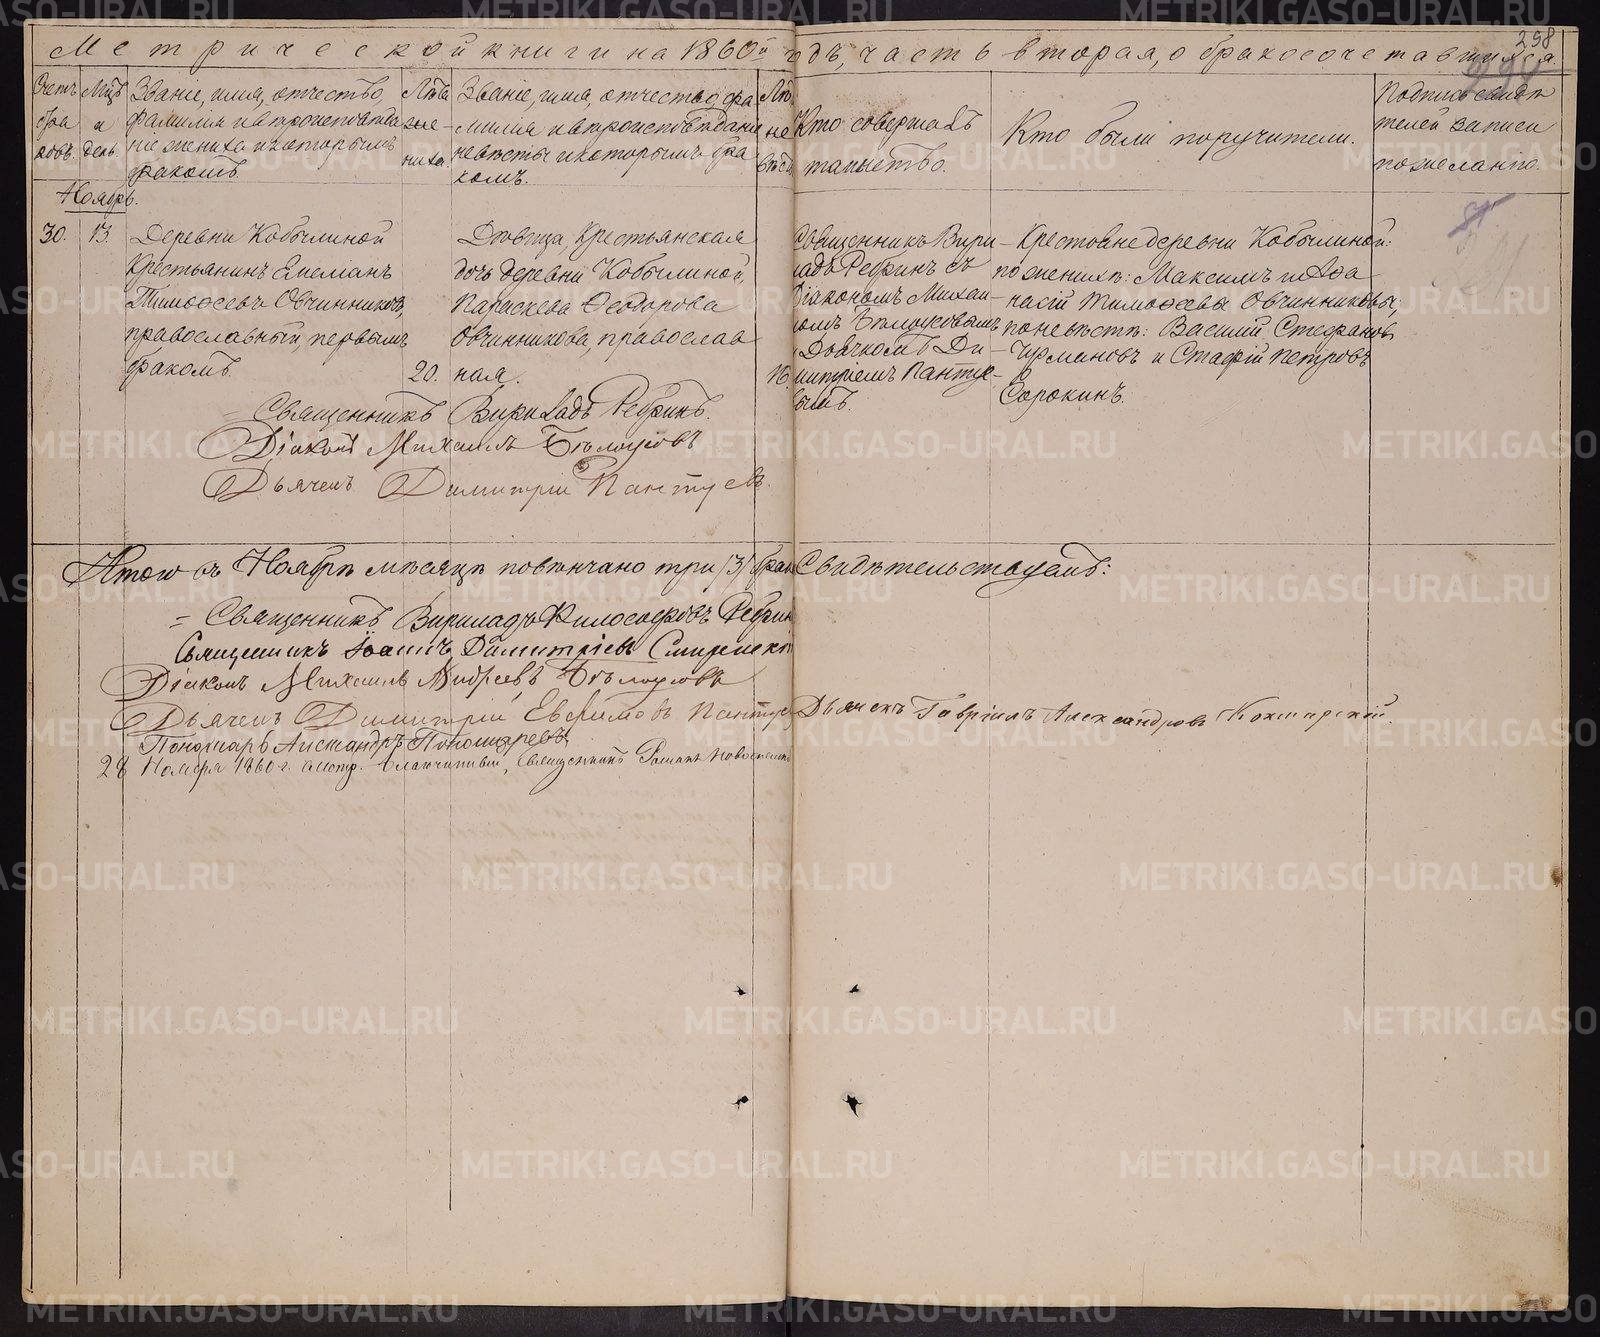 Метрической книги на 1860й годъ, часть вторая, о бракосочетавшихся.
298
Счетъ браковъ.
Мцъ и день.
Званіе, имя, отчество,
фамилия и вѣроисповѣда
ніе жениха и которымъ
бракомъ
Лѣта
же-
ниха.
Званіе, имя, отчество, фа
милія и вѣроисповѣданіе
невѣсты и которымъ бра
комъ.
Лѣ
не
вѣст
Кто совершалъ
таинство.
Кто были поручители.
Подпись свидѣ
телей записи
по желанію.
Ноябрь.
30.
13.
Деревни Кобылиной
Крестьянинъ Емеліанъ
Тимоѳеевъ Овчинниковъ,
православный, первымъ
бракомъ.
20.
Дѣвица, Крестьянская
дочь деревни Кобылиной,
Параскева Ѳеодорова
Овчинникова, православ
ная.
Священникъ Вири
ладъ Ребринъ съ
Діакономъ Михаи-
ломъ Бѣлоусовымъ
и Дьячкомъ Ди-
митріемъ Пантуе-
вымъ.
Крестьяне деревни Кобылиной:
по женихѣ: Максимъ и Аѳа
насій Тимоѳеевы Овчинниковы;
по невѣстѣ: Василий Стефановъ
и Стафій Петровъ
Сорокинъ.
Священникъ Вириладъ Ребринъ.
Діаконъ Михаилъ Бѣлоусовъ
Дьячекъ Димитрій Пантуевъ.
Итого въ Ноябрѣ мѣсяцѣ повѣнчано три /3/ брак Свидѣтельствуемъ:
= Священникъ Вириладъ Философовъ Ребрин
Священникъ Іоаннъ Димитріевъ Смиренскій
Діаконъ Михаилъ Андреевъ Бѣлоусовъ
Дьячекъ Димитрій Евфимовъ Пантуе
Дьячекъ Гавріилъ Александровъ
Пономарь Александръ Пономаревъ
28 Ноября 1860 г. Благочинный, Священникъ Романъ
METRIKI.GASO-URAL.RU